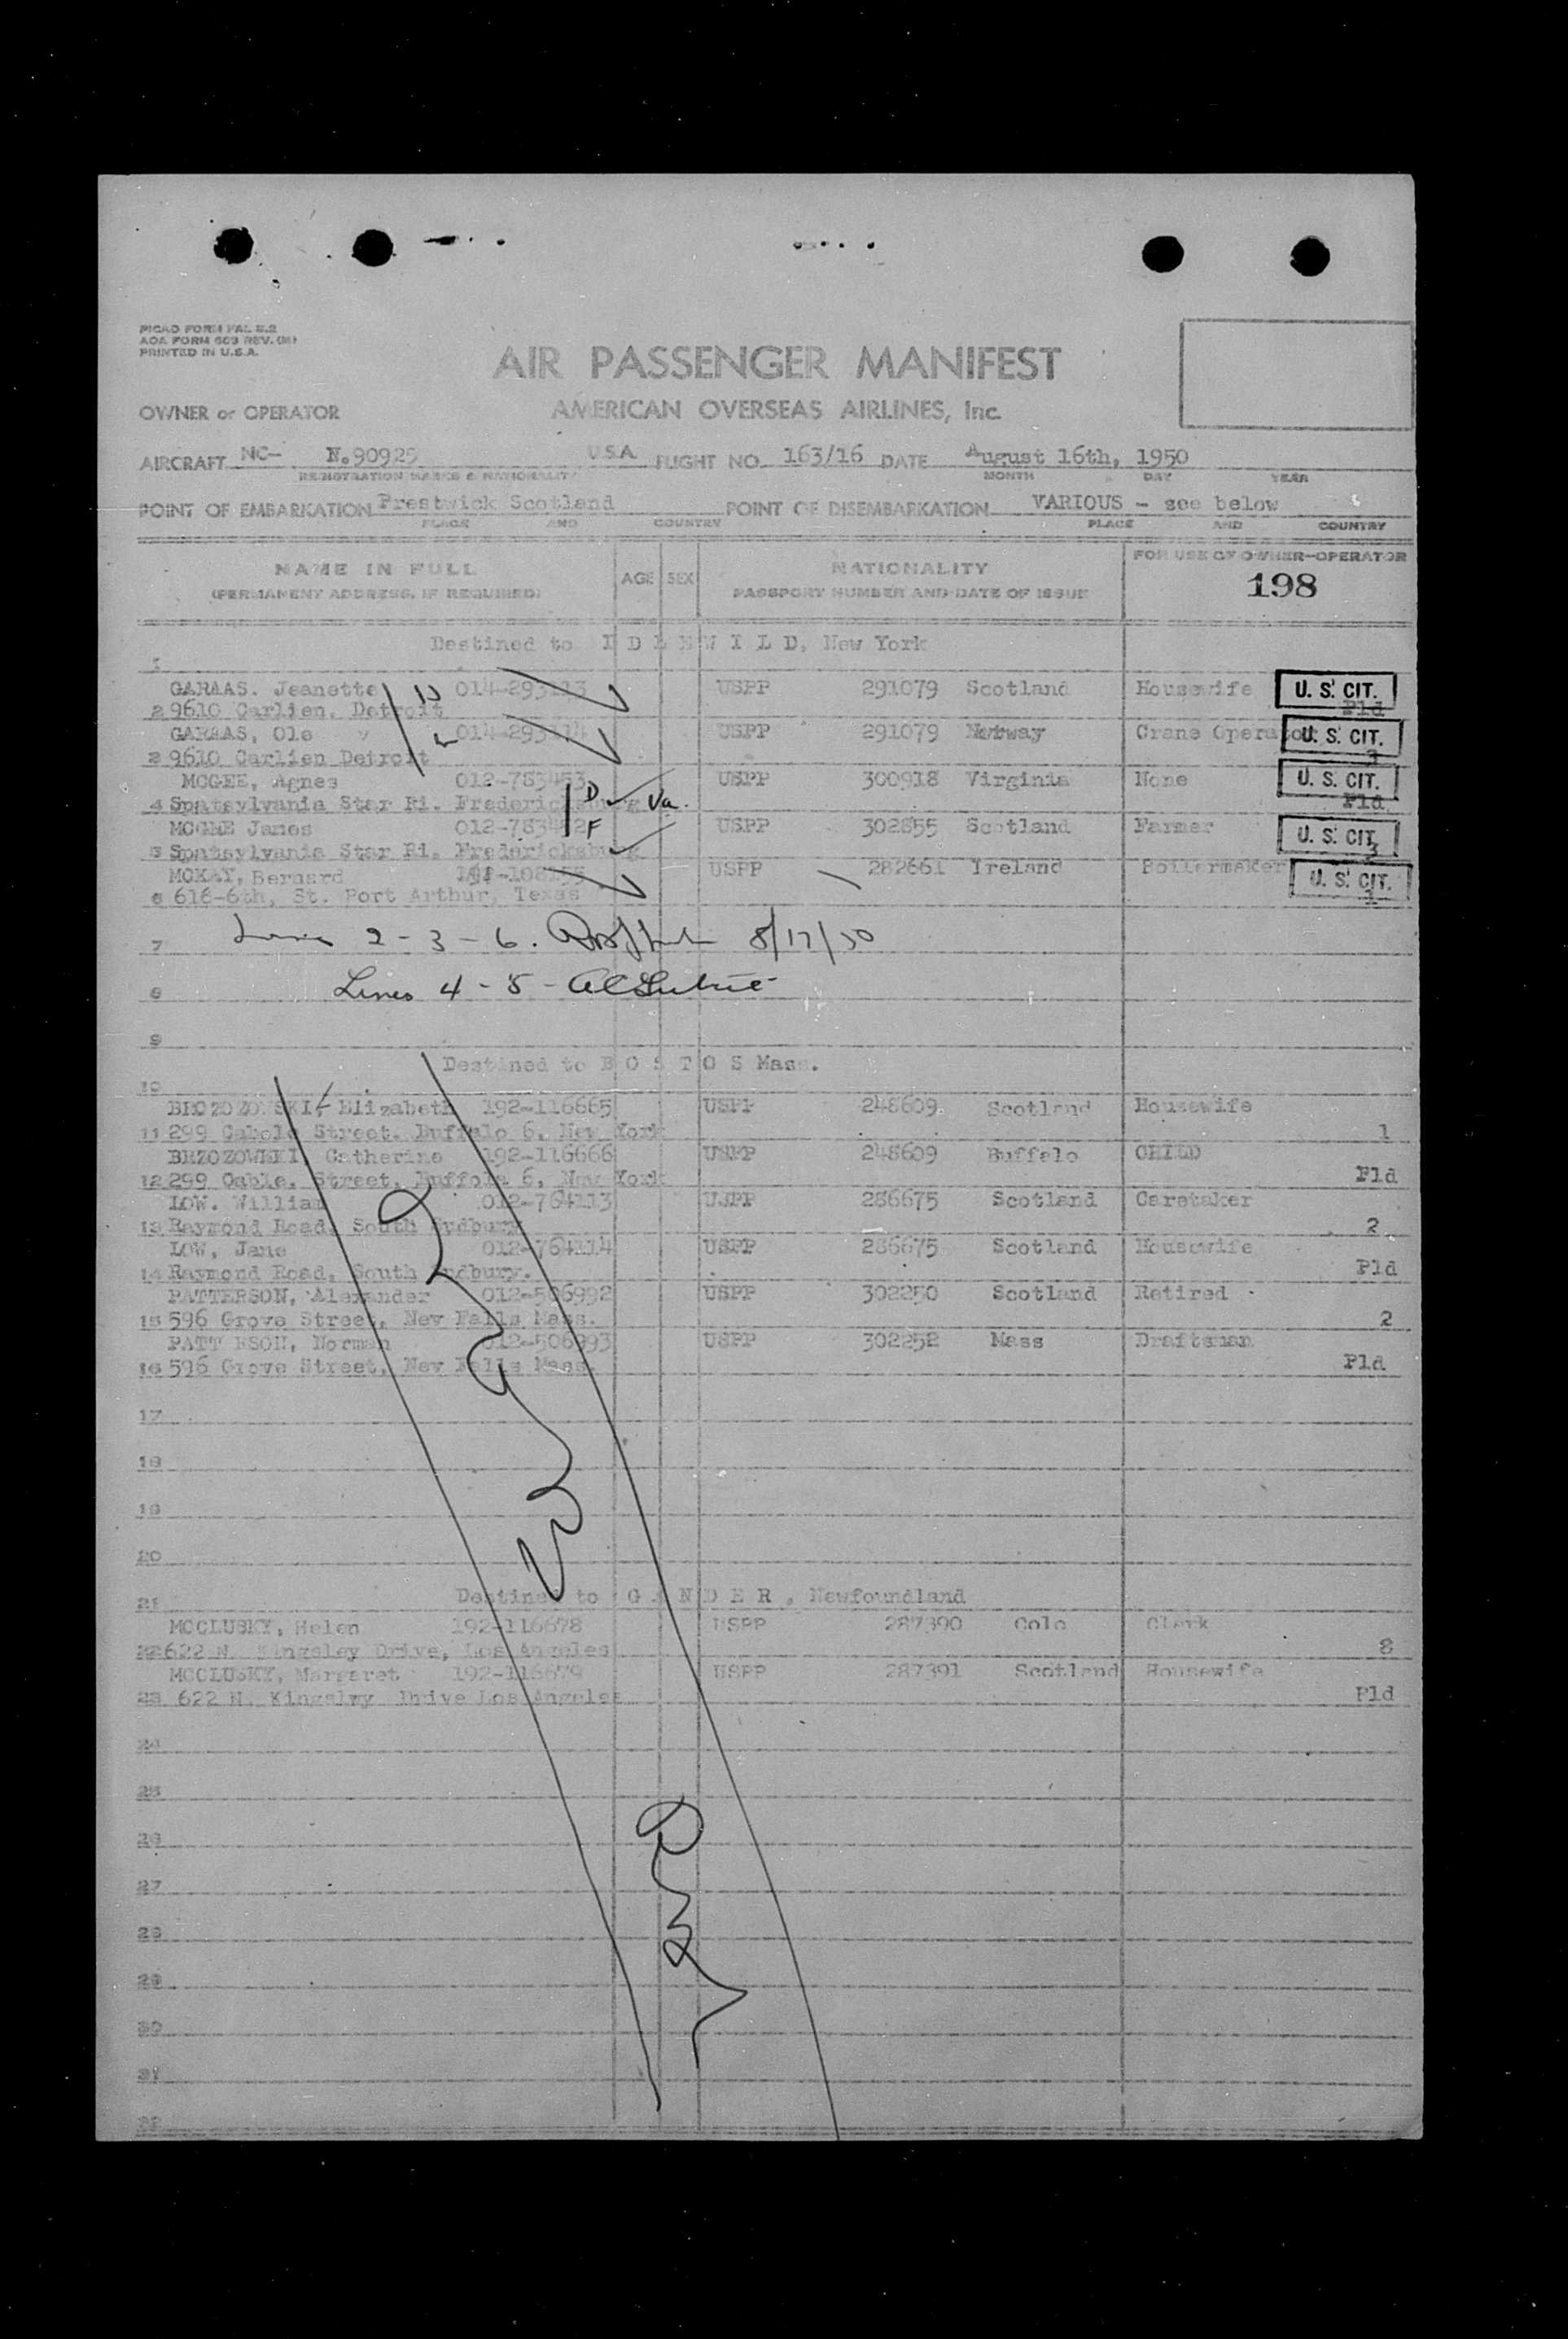 PICAO FORM FAL 2.2
AOA FORM 603 REV. (M)
PRINTED IN U.S.A.
AIR PASSENGER MANIFEST
OWNER or OPERATOR AMERICAN OVERSEAS AIRLINES, Inc.
AIRCRAFT NC- N.90925 U.S.A. FLIGHT NO. 163/16 DATE August 16th, 1950
REGISTRATION MARKS & NATIONALITY MONTH DAY YEAR
POINT OF EMBARKATION Prestwick Scotland POINT OF DISEMBARKATION VARIOUS - see below
PLACE AND COUNTRY PLACE AND COUNTRY
NAME IN FULL AGE SEX NATIONALITY FOR USE OF OWNER-OPERATOR
(PERMANENT ADDRESS, IF REQUIRED) PASSPORT NUMBER AND DATE OF ISSUE 198
Destined to I D L E W I L D, New York
1
GARAAS. Jeanette 014-293113 USPP 291079 Scotland Housewife U. S. CIT.
2 9610 Carlien, Detroit Pld
GARAAS, Ole 014-293114 USPP 291079 Norway Crane Operator U. S. CIT.
3 9610 Carlien Detroit 3
MCGEE, Agnes 012-783453 USPP 300918 Virginia None U. S. CIT.
4 Spatsylvania Star Ri. Fredericksburg Va. Pld
MCGEE James 012-783452 USPP 302855 Scotland Farmer U. S. CIT.
5 Spatsylvania Star Ri. Fredericksburg 3
MCKAY, Bernard USPP 282661 Ireland Boilermaker U. S. CIT.
6 616-6th, St. Port Arthur, Texas 1
7 Lines 2 - 3 - 6. 8/17/50
8 Lines 4 - 5 -
9
Destined to B O S T O S Mass.
10
BROZOZOWSKI, Elizabeth 192-116665 USPP 248609 Scotland Housewife
11 299 Street. Buffalo 6, New York 1
BRZOZOWSKI, Catherine 192-116666 USPP 248609 Buffalo CHILD
12 299 Street, Buffola 6, New York Pld
LOW. William 012-764113 USPP 286675 Scotland Caretaker
13 Raymond Road, South Sudbury 2
LOW, Jane 012-764114 USPP 286675 Scotland Housewife
14 Raymond Road, South Sudbury. Pld
PATTERSON, Alexander 012-506992 USPP 302250 Scotland Retired
15 596 Grove Street, New Falls Mass. 2
PATT RSON, Norman 012-506993 USPP 302252 Mass Draftsman
16 596 Grove Street, New Falls Mass. Pld
17
18
19
20
Destined to G A N D E R , Newfoundland
21
MCCLUSKY, Helen 192-116678 USPP 287390 Colo Clerk
22 622 N. Kingsley Drive, Los Angeles 8
MCCLUSKY, Margaret 192-116679 USPP 287391 Scotland Housewife
23 622 N. Kingsley Drive Los Angeles Pld
24
25
26
27
28
29
30
31
32